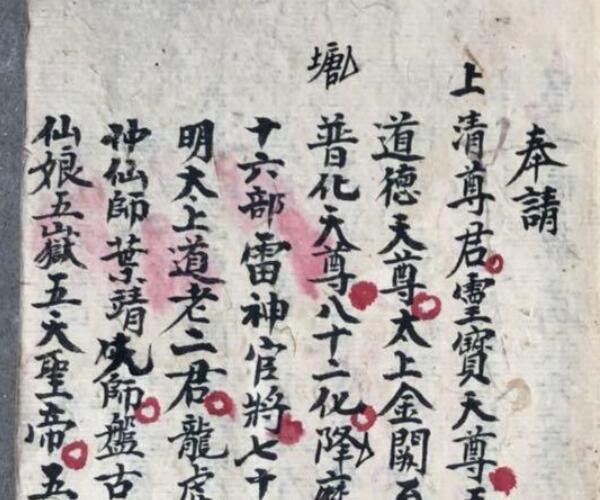 奉請
上清尊君靈寶天尊
道德天尊太上金闕
普化天尊八十二化降
十六部雷神官將七十
明大上道老二君龍虎
神仙師葉靖 師盤古
仙娘五嶽五天聖帝五